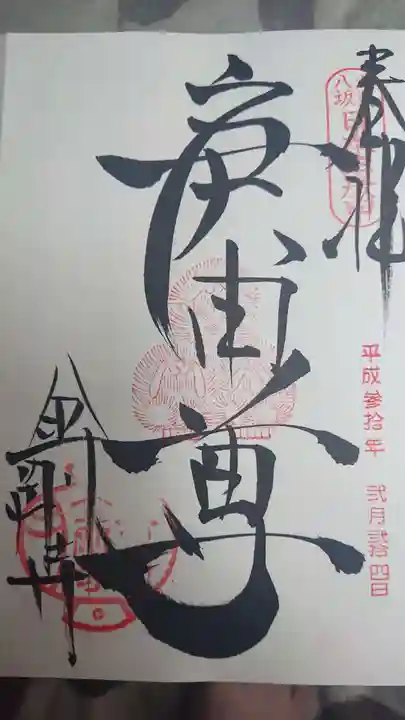 奉拝
八坂日
平成参拾年 弐月弐拾四日
庚申尊
金剛寺